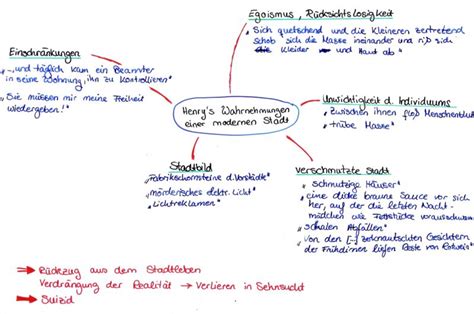 Egoismus, Rücksichtslosigkeit
„Sich quetschend und die Kleineren zertretend
schob sich die Masse ineinander und riß sich
die Kleider und Haut ab"
Einschränkungen
„...und täglich kam ein Beamter
in seine Wohnung, ihn zu kontrollieren"
„Sie müssen mir meine Freiheit
wiedergeben!"
Henry's Wahrnehmungen
einer modernen Stadt
Unwichtigkeit d. Individuums
„zwischen ihnen floß Menschenblut"
„trübe Masse"
Stadtbild
„Fabrikschornsteine d. Vorstädte"
„mörderisches elektr. Licht"
„Lichtreklamen"
verschmutzte Stadt
„schmutzige Häuser"
„eine dicke braune Sauce vor sich
her, auf der die letzten Nacht-
mädchen wie Fettstücke vorausschwammen"
„schalen Abfällen"
„Von den [...] zerknautschten Gesichtern
der Frühdirnen liefen Reste von Rotwein"
⇒ Rückzug aus dem Stadtleben
Verdrängung der Realität → Verlieren in Sehnsucht
→ Suizid